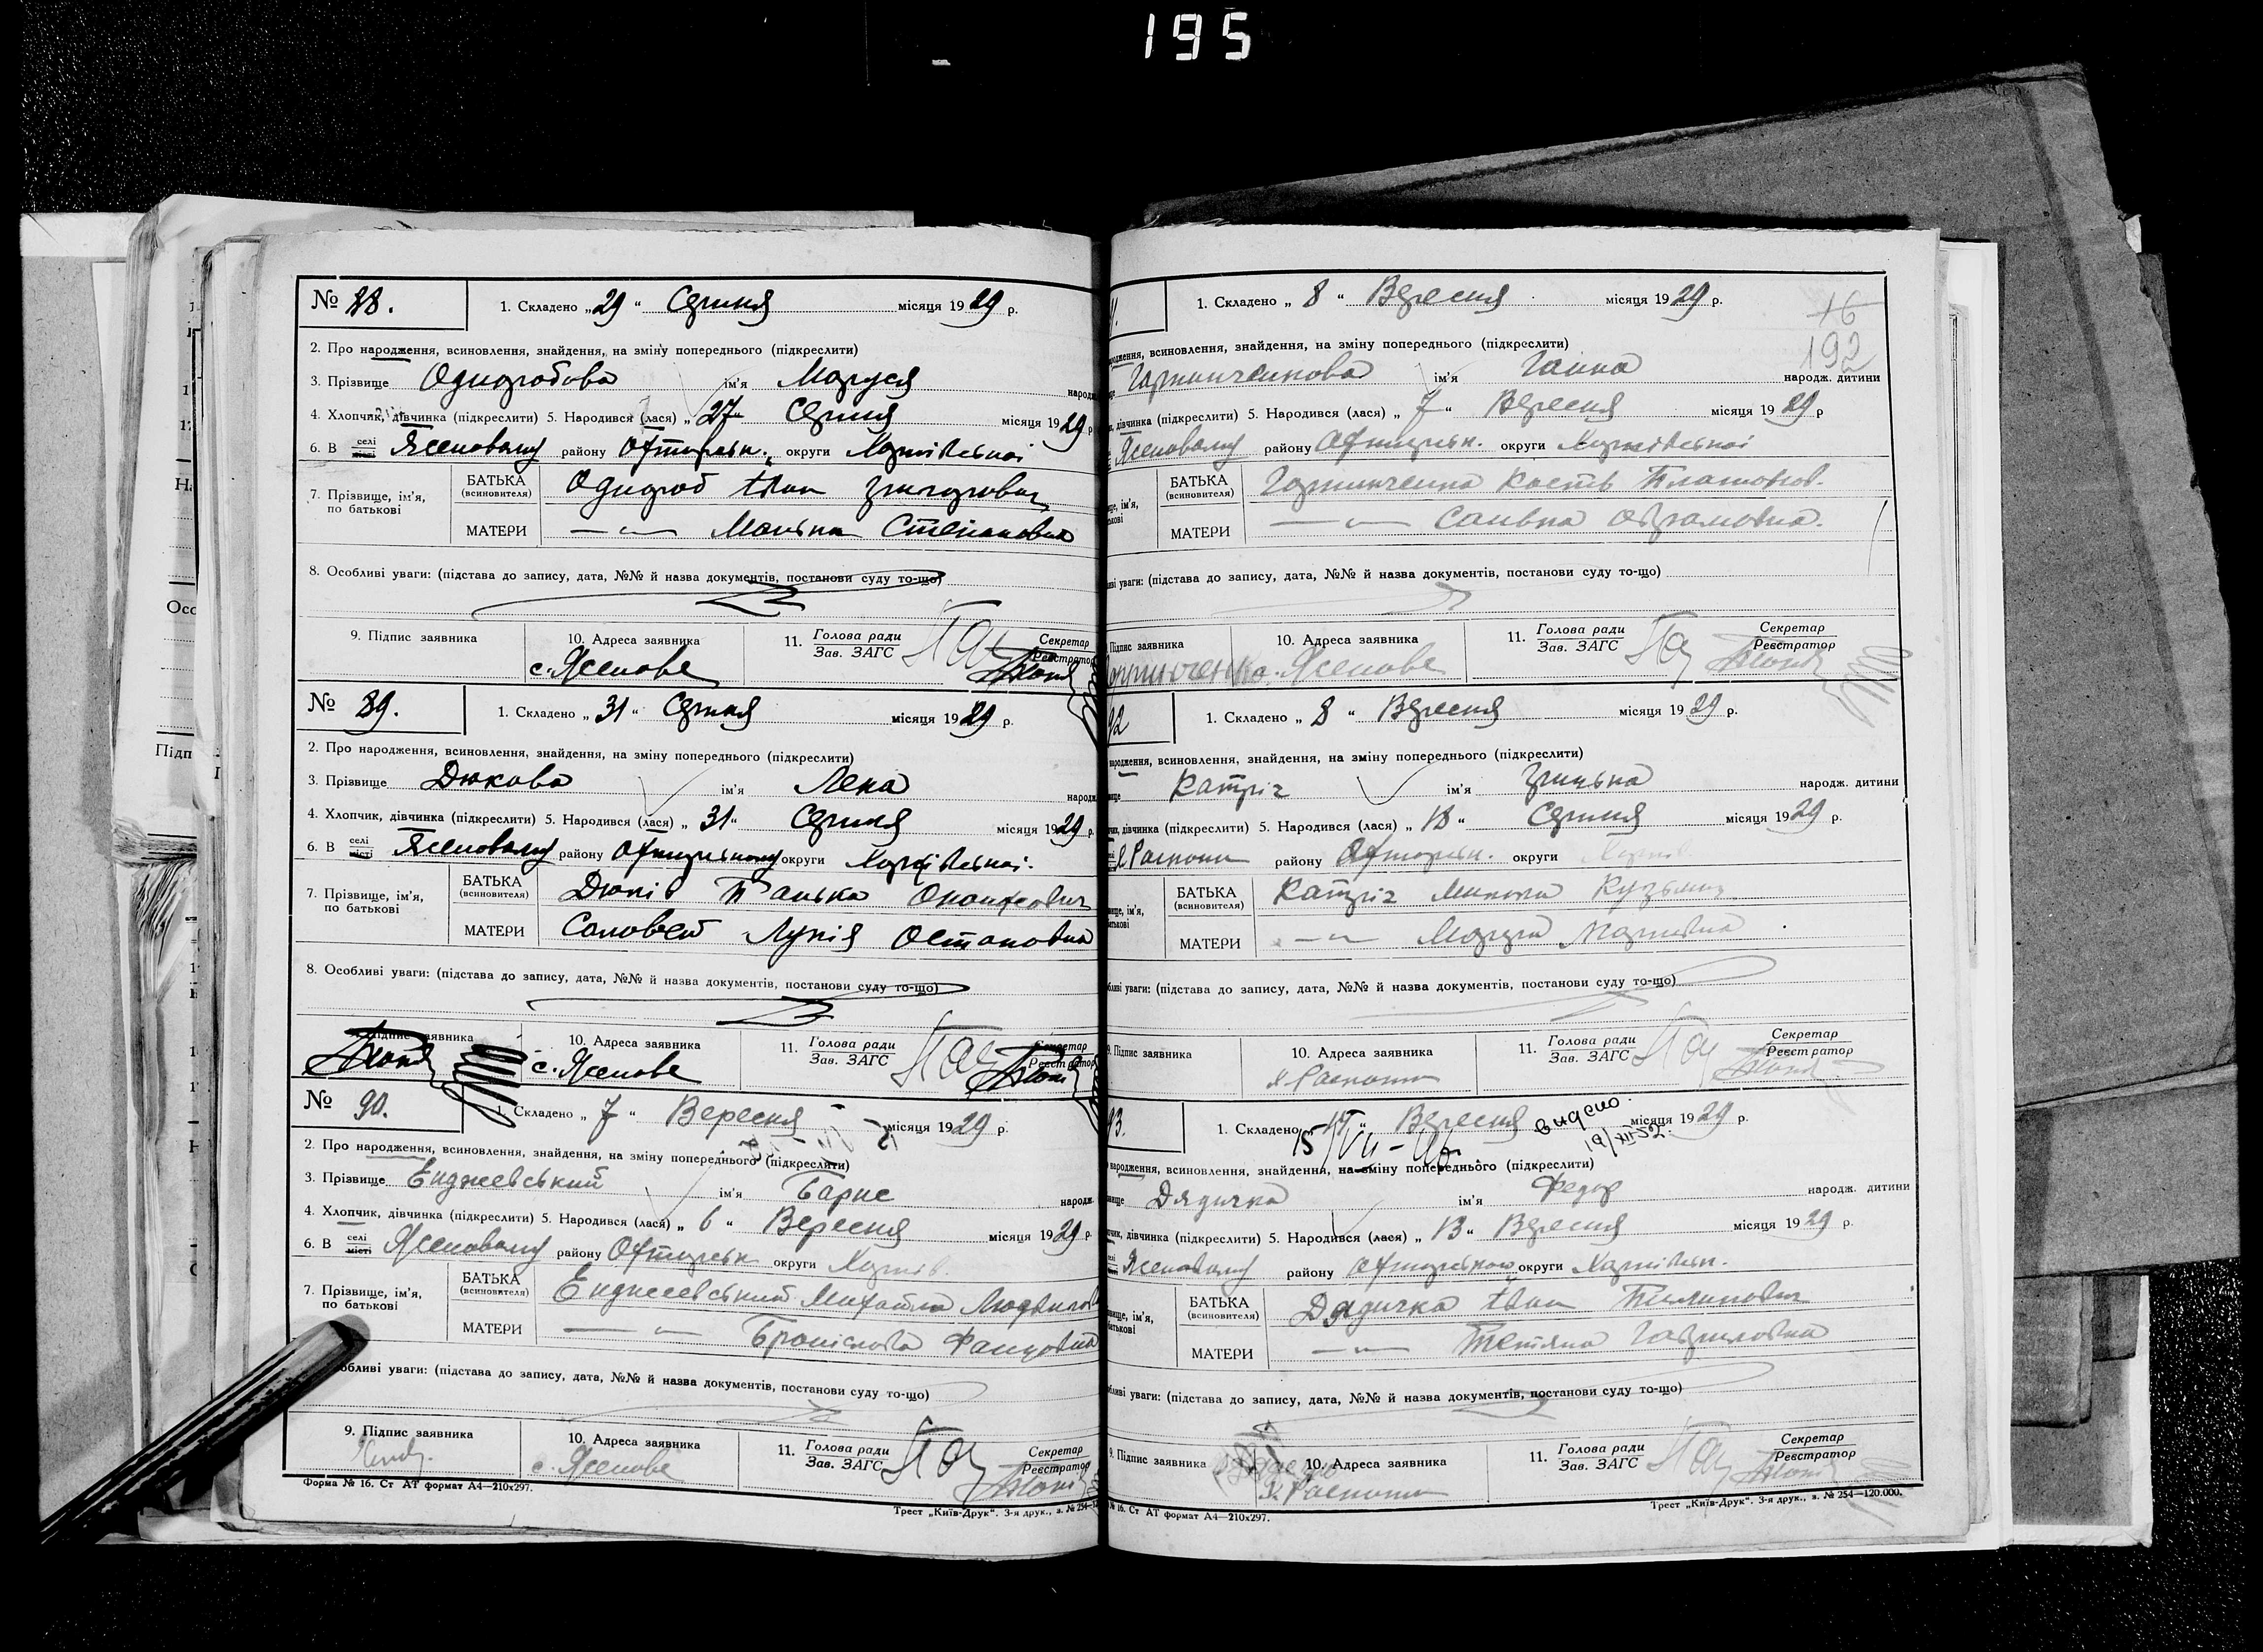 195
№ 88.
1. Складено „29“ Серпня місяця 1929 р.
2. Про народження, всиновлення, знайдення, на зміну попереднього (підкреслити)
3. Прізвище Однороб​ова ім'я Маруся народж
4. Хлопчик, дівчинка (підкреслити) 5. Народився (лася) „27“ Серпня місяця 1929 р
6. В селі місті Ясеновому району Охтирськ. округи Харківської
7. Прізвище, ім'я, по батькові
БАТЬКА (всиновителя) Однороб Іван Григорович
МАТЕРИ —„— Манька Степановна
8. Особливі уваги: (підстава до запису, дата, №№ й назва документів, постанови суду то-що)
9. Підпис заявника
10. Адреса заявника
с. Ясенове
11. Голова ради Зав. ЗАГС
Секретар Реєстратор
№ 89.
1. Складено „31“ Серпня місяця 1929 р.
2. Про народження, всиновлення, знайдення, на зміну попереднього (підкреслити)
3. Прізвище Дюкова ім'я Лена народж
4. Хлопчик, дівчинка (підкреслити) 5. Народився (лася) „31“ Серпня місяця 1929 р.
6. В селі місті Ясеновому району Охтирському округи Харківської.
7. Прізвище, ім'я, по батькові
БАТЬКА (всиновителя) Дюків Панька
МАТЕРИ Соловей Лукія Остаповна
8. Особливі уваги: (підстава до запису, дата, №№ й назва документів, постанови суду то-що)
Підпис заявника
10. Адреса заявника
с. Ясенове
11. Голова ради Зав. ЗАГС
Секретар Реєстратор
№ 90.
1. Складено „7“ Вересня місяця 1929 р.
2. Про народження, всиновлення, знайдення, на зміну попереднього (підкреслити)
3. Прізвище Енджеєвський ім'я Барис народж.
4. Хлопчик, дівчинка (підкреслити) 5. Народився (лася) „6“ Вересня місяця 1929 р.
6. В селі місті Ясеновому району Охтирськ округи Харків.
7. Прізвище, ім'я, по батькові
БАТЬКА (всиновителя) Енджеєвський Михайло
МАТЕРИ —„— Броніслова
обливі уваги: (підстава до запису, дата, №№ й назва документів, постанови суду то-що)
9. Підпис заявника
10. Адреса заявника
с. Ясенове
11. Голова ради Зав. ЗАГС
Секретар Реєстратор
Форма № 16. Ст АТ формат А4—210х297.
Трест „Київ-Друк“. 3-я друк., з. № 254—12
16
192
1. Складено „8“ Вересня місяця 1929 р.
родження, всиновлення, знайдення, на зміну попереднього (підкреслити)
ім'я Ганна народж. дитини
дівчинка (підкреслити) 5. Народився (лася) „7“ Вересня місяця 1929 р
Ясеновому району Охтирськ. округи Харківської
БАТЬКА (всиновителя) Кость Платонов.
МАТЕРИ —„— Абрамовна.
иві уваги: (підстава до запису, дата, №№ й назва документів, постанови суду то-що)
Підпис заявника
10. Адреса заявника
Ясенове
11. Голова ради Зав. ЗАГС
Секретар Реєстратор
92
1. Складено „8“ Вересня місяця 1929 р.
народження, всиновлення, знайдення, на зміну попереднього (підкреслити)
Катріг ім'я Грицька народж. дитини
дівчинка (підкреслити) 5. Народився (лася) „18“ Серпня місяця 1929 р.
району Охтирськ. округи Харків
БАТЬКА (всиновителя) Катріг Микола Кузьмич
МАТЕРИ —„— Марфа
бливі уваги: (підстава до запису, дата, №№ й назва документів, постанови суду то-що)
9. Підпис заявника
10. Адреса заявника
11. Голова ради Зав. ЗАГС
Секретар Реєстратор
93.
1. Складено Вересня місяця 1929 р.
видано.
19/XII-52.
15/VII-
народження, всиновлення, знайдення, на зміну попереднього (підкреслити)
Дядичка ім'я Федор народж. дитини
чик, дівчинка (підкреслити) 5. Народився (лася) „13“ Вересня місяця 1929 р.
Ясеновому району Охтирського округи Харківськ.
БАТЬКА (всиновителя) Дядичка Іван Пилипович
МАТЕРИ —„— Тетяна Гавриловна
бливі уваги: (підстава до запису, дата, №№ й назва документів, постанови суду то-що)
9. Підпис заявника
10. Адреса заявника
11. Голова ради Зав. ЗАГС
Секретар Реєстратор
№ 16. Ст АТ формат А4—210х297.
Трест „Київ-Друк“. 3-я друк., з. № 254—120.000.